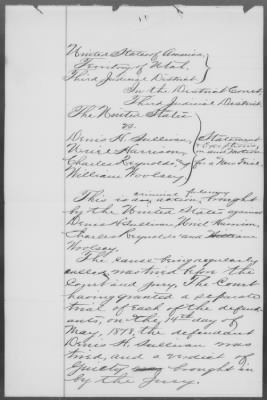 United States of America,
Territory of Utah,
Third Judicial District
In the District Court,
Third Judicial District.
The United States
vs.
Denis H. Sullivan,
Harrison,
Charles Reynolds, &
William Woolsey
Statement
on motion
for a New Trial.
This is an criminal action, brought
by the United States against
Denis H. Sullivan,
Charles Reynolds and William
Woolsey.
The cause being regularly
called was tried before the
Court and jury, The Court
having granted a separate
trial of each of the defend-
ants, on the day of
May, 1878, the defendant
Denis H. Sullivan was
tried, and a verdict of
Guilty, brought in
by the Jury.